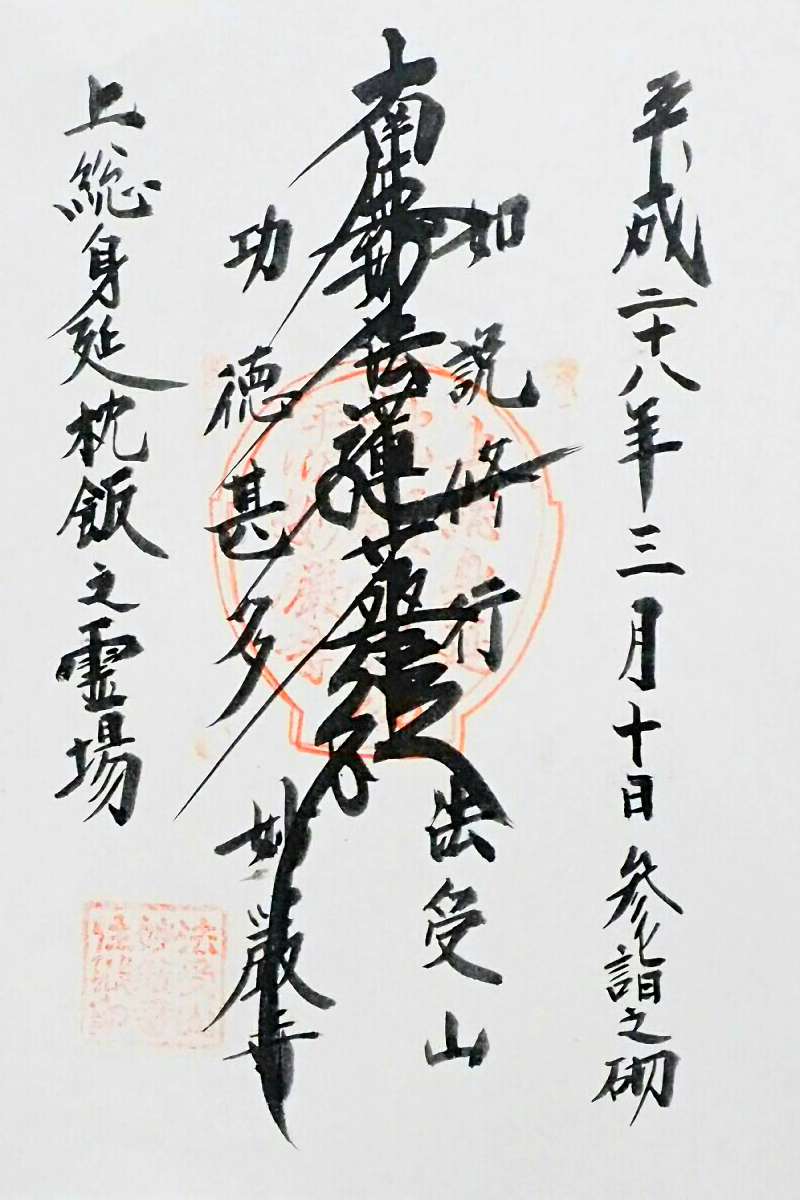 平成二十八年三月十日 参詣之砌
如説修行 法受山
南無妙法蓮華経
功徳甚多 妙厳寺
上総身延枕飯之霊場